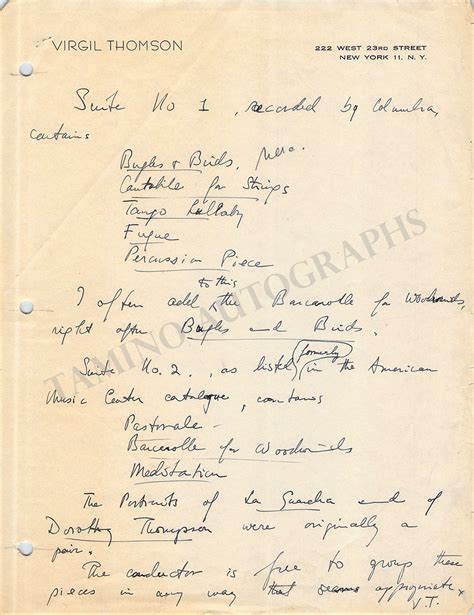 VIRGIL THOMSON
222 WEST 23RD STREET
NEW YORK 11, N. Y.
Suite No 1, recorded by Columbia,
contains
Bugles & Birds,
Cantabile for Strings
Tango Lullaby
Fugue
Percussion Piece
to this
I often add the Barcarolle for Woodwinds,
right after Bugles and Birds.
formerly
Suite No. 2, as listed in the American
Music Center catalogue, contains
Pastorale
Barcarolle for Woodwinds
Meditation
The Portraits of La Guardia and of
Dorothy Thompson were originally a
pair.
The conductor is free to group these
pieces in any way that seems appropriate
V.T.
TAMINO AUTOGRAPHS